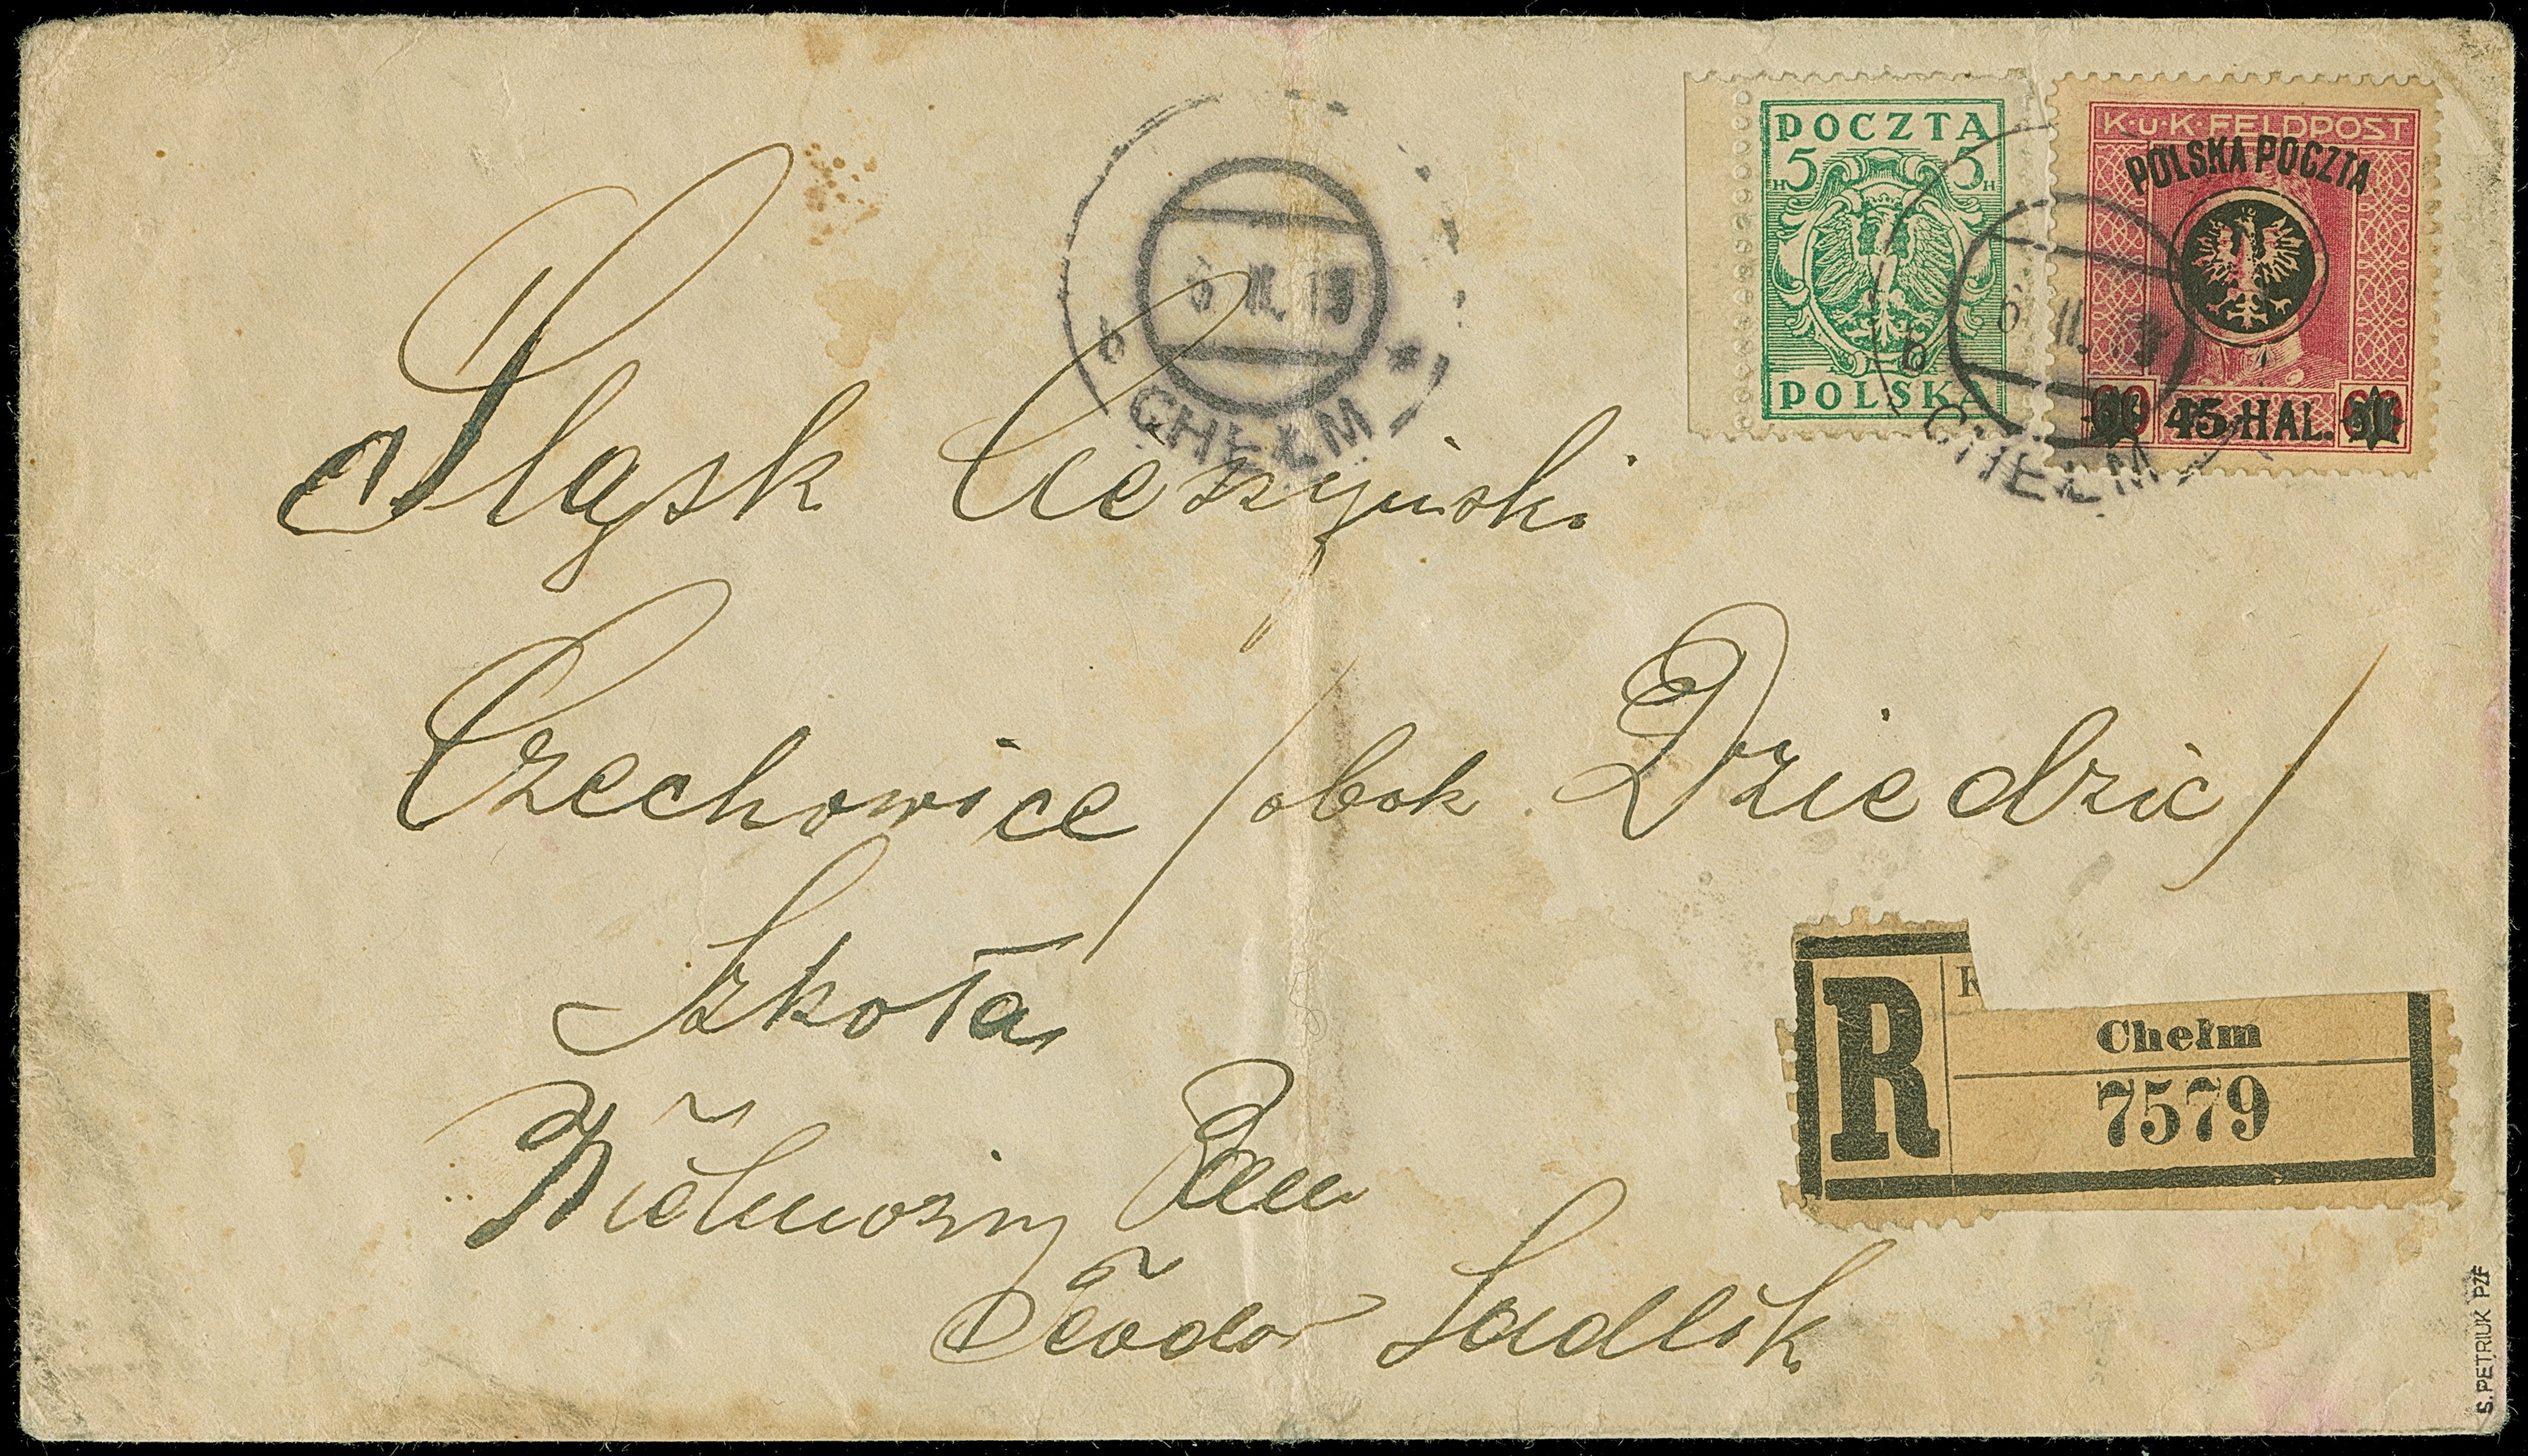 POCZTA
5 5
H H
POLSKA
K·u·K·FELDPOST
POLSKA POCZTA
60 45 HAL. 60
6 III. 19
b *
CHEŁM
6 III. 19
b
CHEŁM
Śląsk Cieszyński
Czechowice /obok Dziedzic/
Szkoła
Wielmożny Pan
Teodor Sadlik
R
Chełm
7579
S. PETRIUK PZF